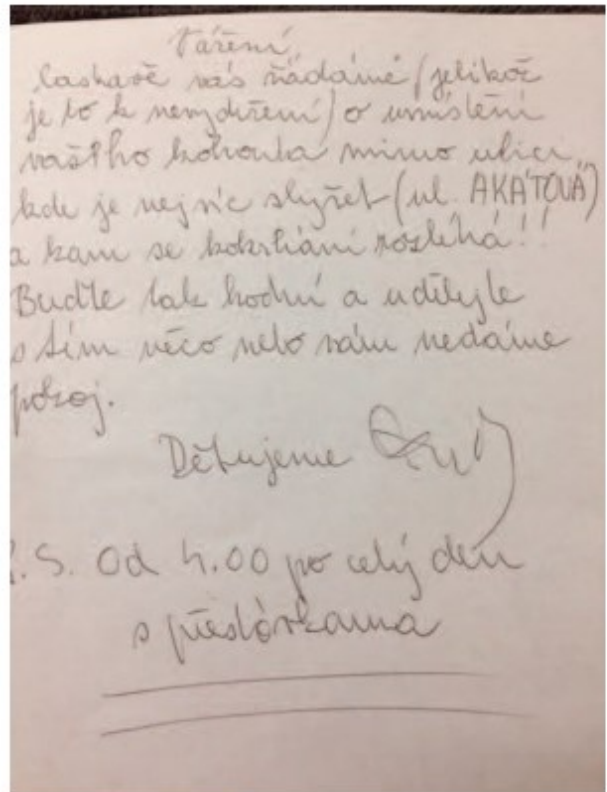 Vážení,
laskavě vás žádáme (jelikož
je to k nevydržení) o umístění
vašeho kohouta mimo ulici,
kde je nejvíc slyšet (ul. AKÁTOVÁ)
a kam se kokrhání rozléhá!!
Buďte tak hodní a udělejte
s tím něco nebo vám nedáme
pokoj.
Děkujeme
P.S. Od 4.00 po celý den
s přestávkama